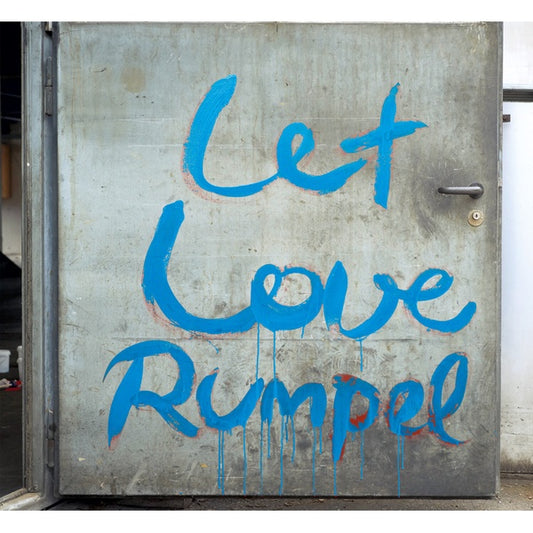 Let
Love
Rumpel